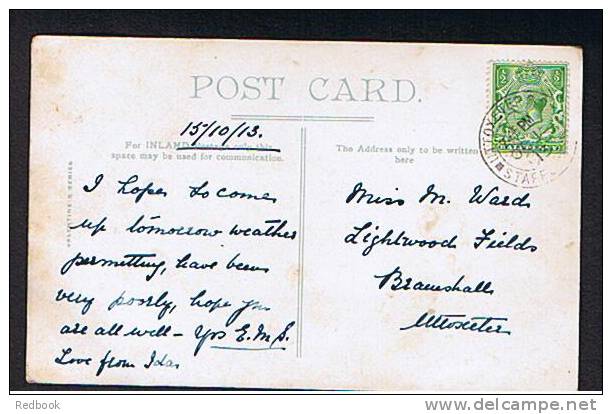 POST CARD.
15/10/13.
For INLAND Postage only this
space may be used for communication.
The Address only to be written
here
VALENTINE'S SERIES
I hope to come
up tomorrow weather
permitting, have been
very poorly, hope you
are all well - Yrs E.M.S.
Love from Ida
Miss M. Ward
Lightwood Fields
Bramshall
Uttoxeter
UTTOXETER
STAFF
Redbook
www.delcampe.net